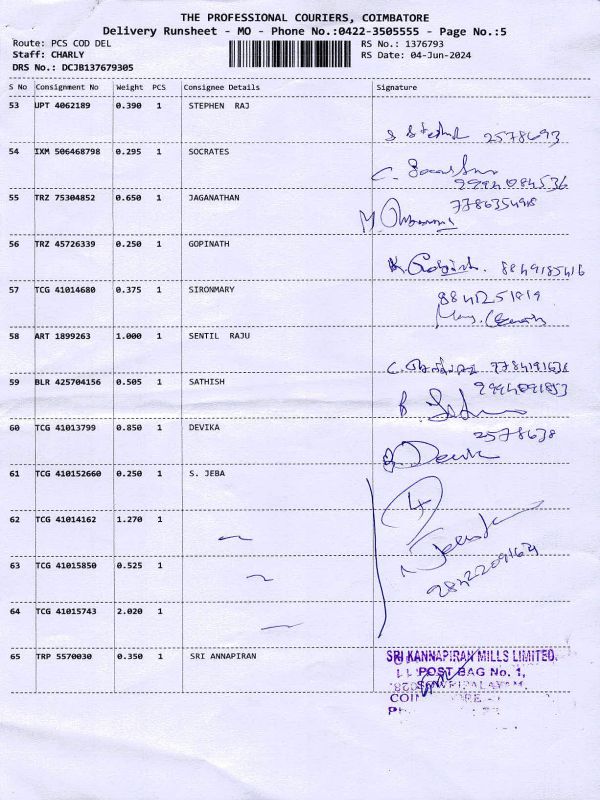 THE PROFESSIONAL COURIERS, COIMBATORE
Delivery Runsheet - MO - Phone No.:0422-3505555 - Page No.:5
Route: PCS COD DEL RS No.: 1376793
Staff: CHARLY RS Date: 04-Jun-2024
DRS No.: DCJB137679305
S No Consignment No Weight PCS Consignee Details Signature
53 UPT 4062189 0.390 1 STEPHEN RAJ
2578693
54 IXM 506468798 0.295 1 SOCRATES
9994084536
55 TRZ 75304852 0.650 1 JAGANATHAN
56 TRZ 45726339 0.250 1 GOPINATH
8849185416
57 TCG 41014680 0.375 1 SIRONMARY
58 ART 1899263 1.000 1 SENTIL RAJU
59 BLR 425704156 0.505 1 SATHISH
60 TCG 41013799 0.850 1 DEVIKA
2578638
61 TCG 410152660 0.250 1 S. JEBA
4
62 TCG 41014162 1.270 1
63 TCG 41015850 0.525 1
64 TCG 41015743 2.020 1
65 TRP 5570030 0.350 1 SRI ANNAPIRAN
SRI KANNAPIRAN MILLS LIMITED,
POST BAG No. 1,